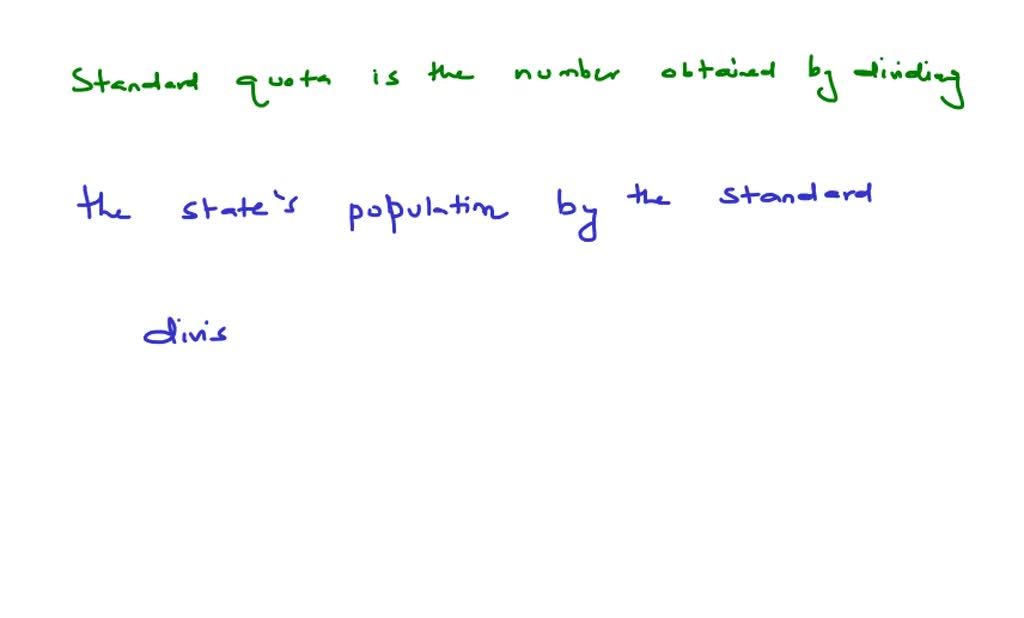 Standard quota is the number obtained by dividing
the state's population by the standard
divis